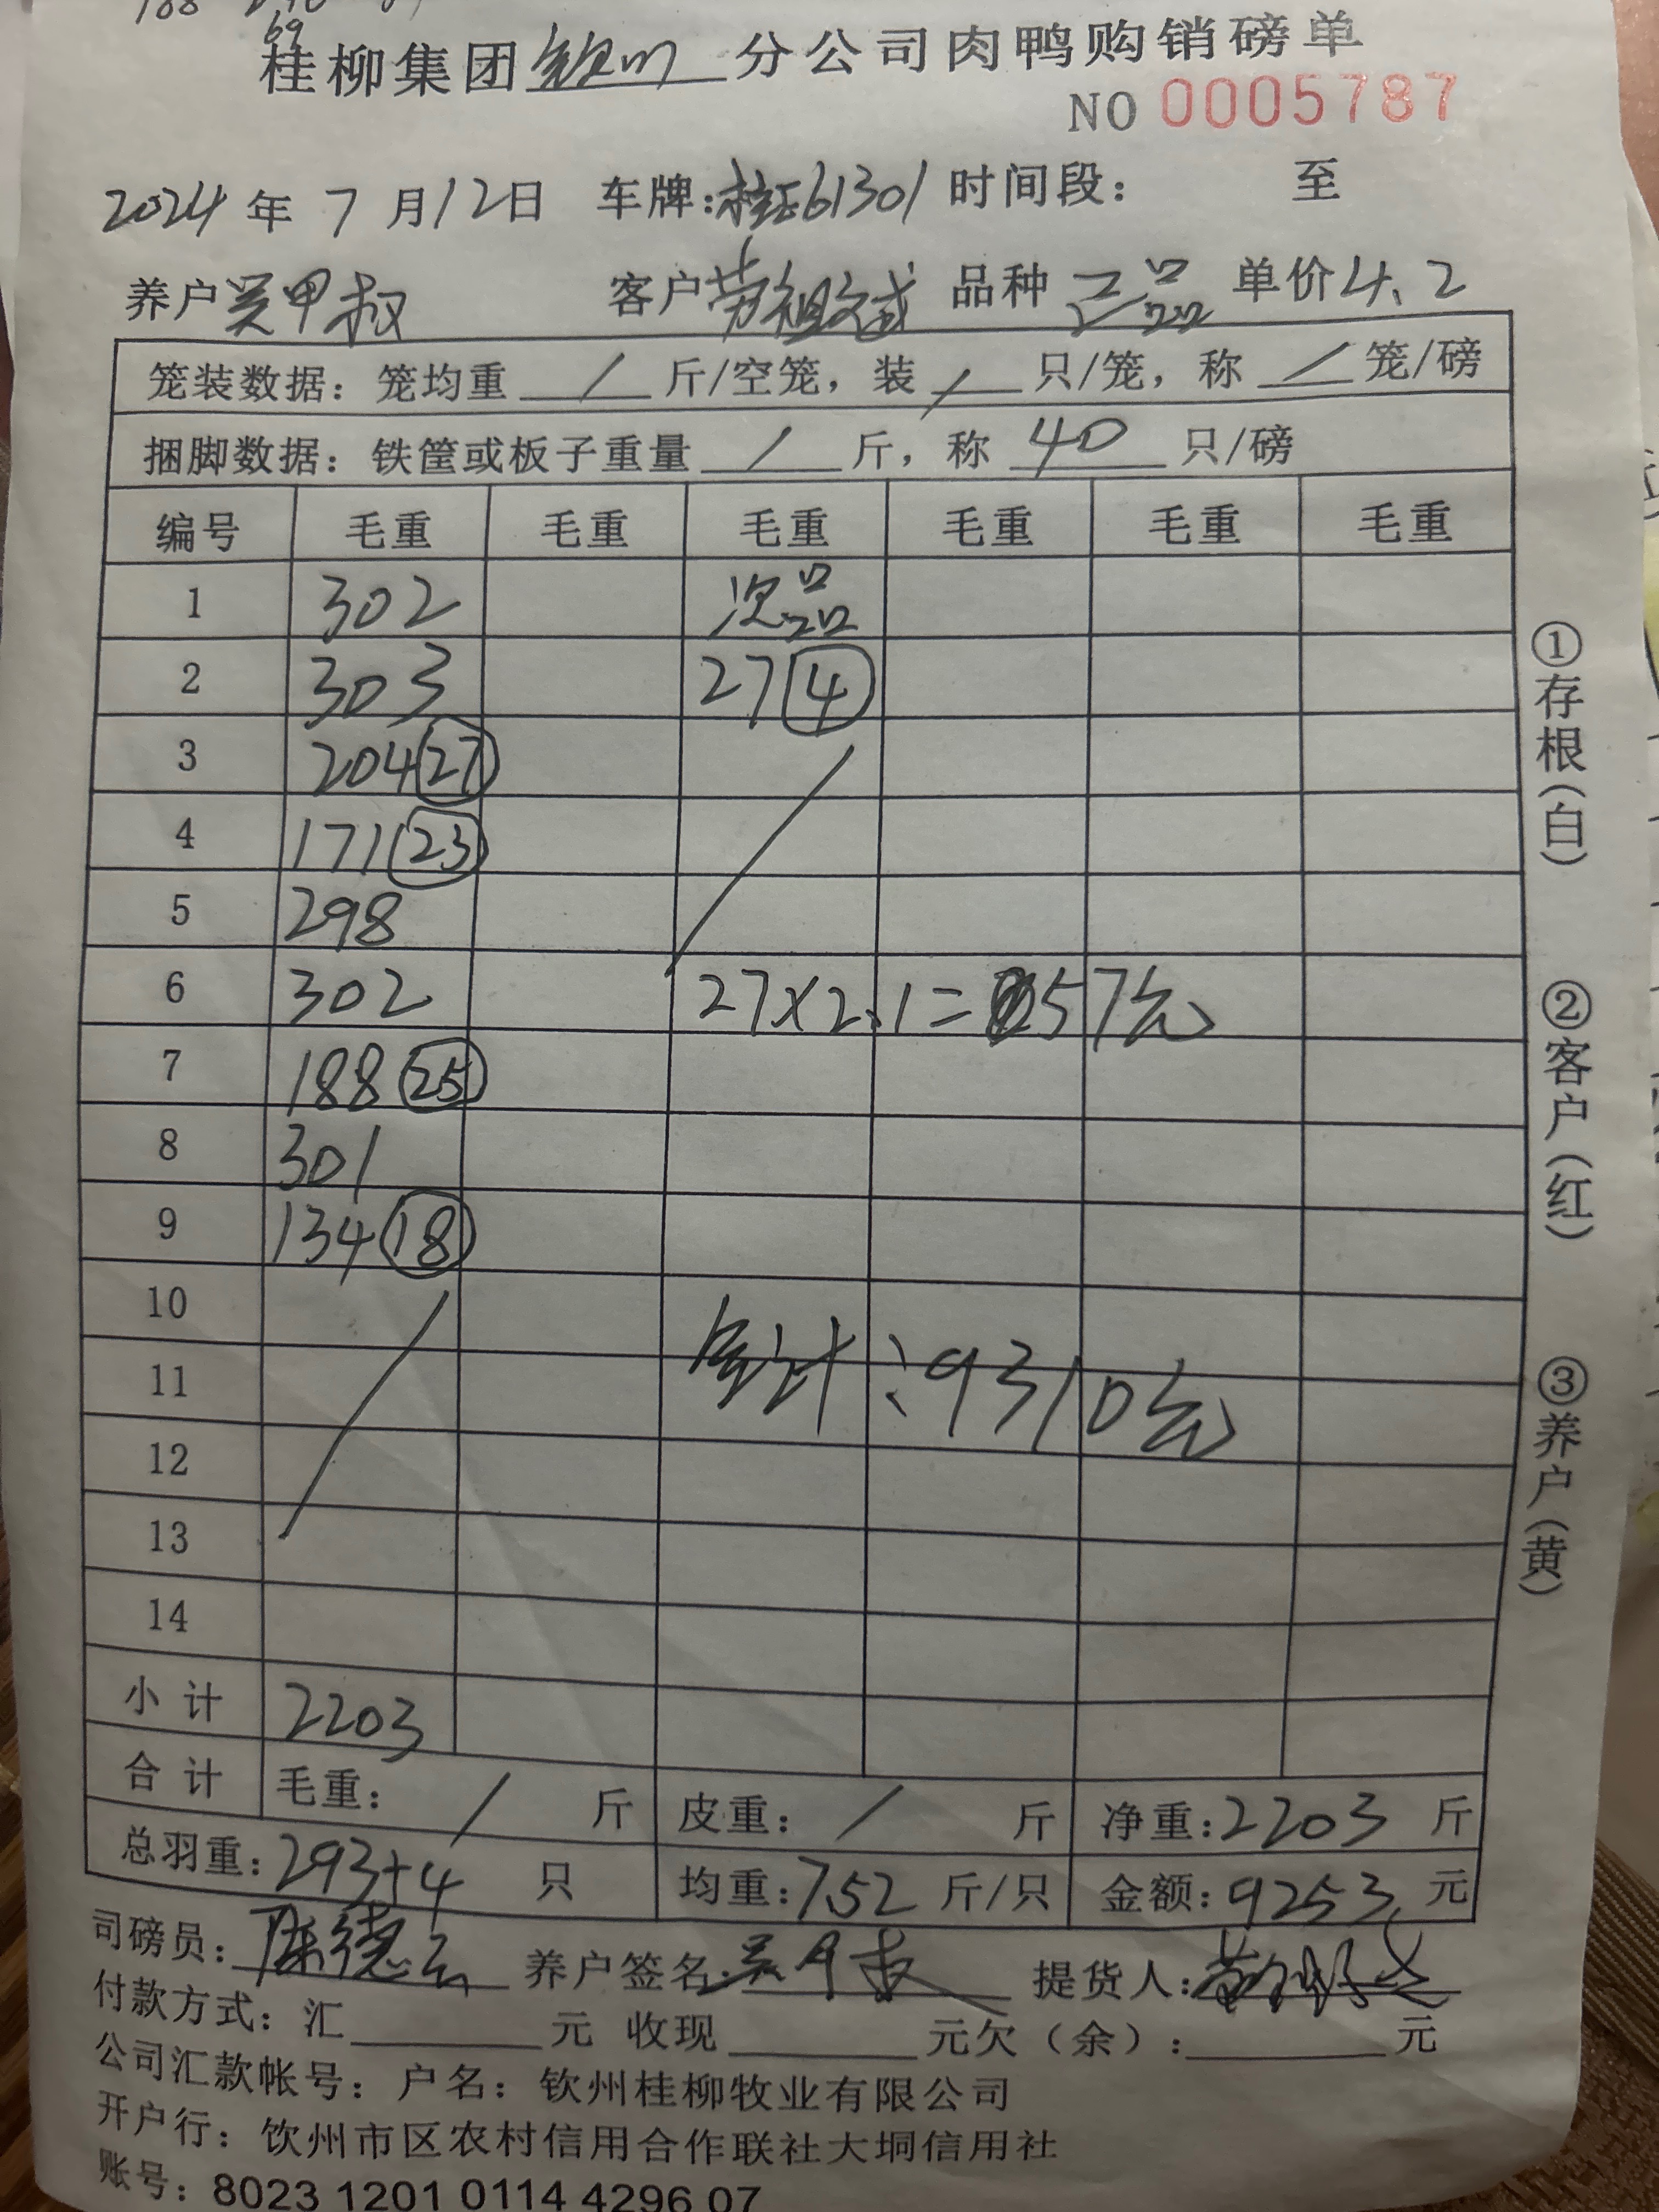 69
桂柳集团钦州分公司肉鸭购销磅单
NO 0005787
2024年7月12日 车牌:桂E61301 时间段: 至
养户吴甲叔 客户劳祖斌 品种 三品 单价4.2
笼装数据：笼均重 / 斤/空笼，装 / 只/笼，称 / 笼/磅
捆脚数据：铁筐或板子重量 / 斤，称 40 只/磅
编号 毛重 毛重 毛重 毛重 毛重 毛重
1 302 次品
2 303 27④
3 204(27)
4 171(23)
5 298
6 302 27×2.1=57元
7 188(25)
8 301
9 134(18)
10
11 合计:9310元
12
13
14
小计 2203
合计 毛重: / 斤 皮重: / 斤 净重:2203 斤
总羽重:293+4 只 均重:7.52 斤/只 金额:9253 元
司磅员:陈德云 养户签名:吴甲叔 提货人:
付款方式：汇 元 收现 元欠（余）: 元
公司汇款帐号：户名：钦州桂柳牧业有限公司
开户行：钦州市区农村信用合作联社大垌信用社
账号：8023 1201 0114 4296 07
①存根(白)
②客户(红)
③养户(黄)